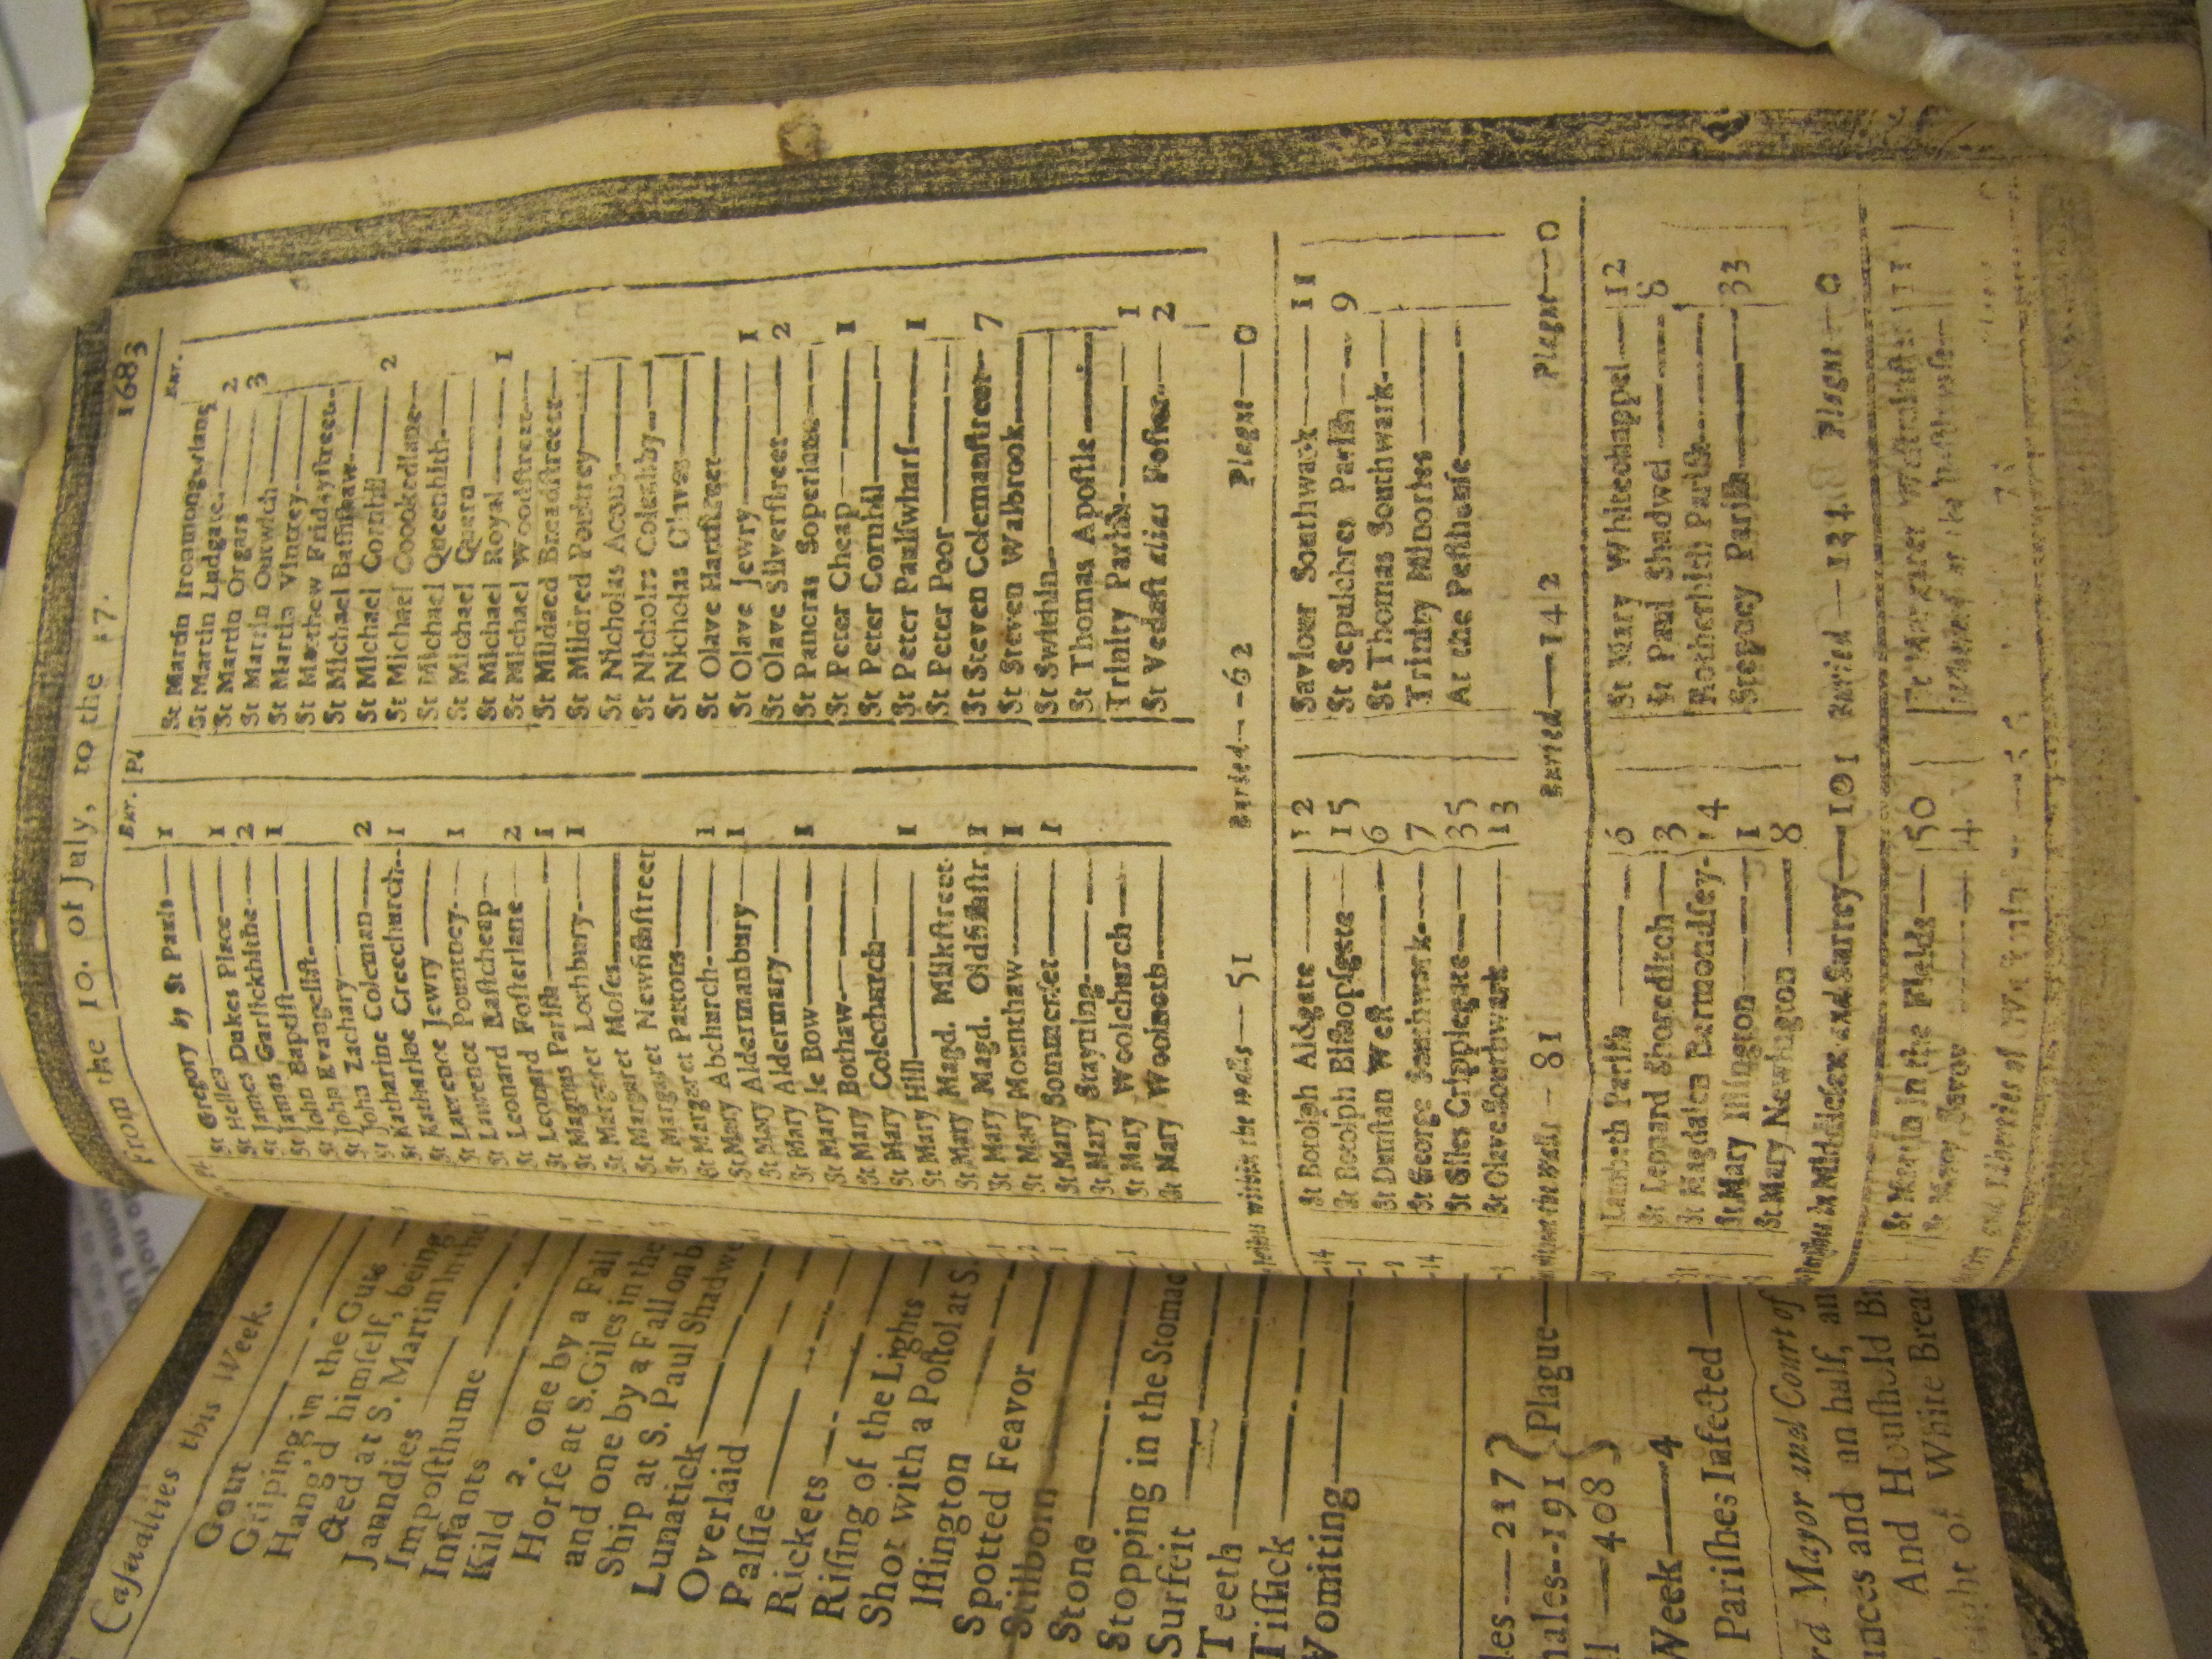 From the 10. of July, to the 17. 1683
Bur. Pl
St Gregory by St Pauls — 1
St Hellen
St James Dukes Place — 1
St James Garlickhithe — 2
St John Baptist — 1
St John Evangelist
St John Zachary
St Katharine Coleman — 2
St Katharine Creechurch — 1
St Lawrence Jewry
St Lawrence Pountney — 1
St Leonard Eastcheap
St Leonard Fosterlane — 2
St Magnus Parish — 1
St Margaret Lothbury — 1
St Margaret Moses
St Margaret Newfishstreet
St Margaret Pattons
St Mary Abchurch — 1
St Mary Aldermanbury — 1
St Mary Aldermary
St Mary le Bow — 1
St Mary Bothaw
St Mary Colechurch
St Mary Hill — 1
St Mary Magd. Milkstreet
St Mary Magd. Oldfishstr — 1
St Mary Mounthaw — 1
St Mary Sommerset — 1
St Mary Stayning
St Mary Woolchurch
St Mary Woolnoth
Bur.
St Martin Iremongerlane
St Martin Ludgate — 2
St Martin Orgars — 3
St Martin Outwich
St Martin Vintrey
St Mathew Fridaystreet
St Michael Bassishaw
St Michael Cornhill — 2
St Michael Coookedlane
St Michael Queenhith
St Michael Quern
St Michael Royal — 1
St Michael Woodstreet
St Mildred Breadstreet
St Mildred Poultrey
St Nicholas Acons
St Nicholas Coleabby
St Nicholas Olaves
St Olave Hartstreet
St Olave Jewry — 1
St Olave Silverstreet — 2
St Pancras Soperlane
St Peter Cheap — 1
St Peter Cornhil
St Peter Paulswharf — 1
St Peter Poor
St Steven Colemanstreet — 7
St Steven Walbrook
St Swithin
St Thomas Apostle
Trinity Parish — 1
St Vedast alias Foster — 2
within the walls — 51 Buried — 62 Plague — 0
St Botolph Aldgate — 12
St Botolph Bishopsgate — 15
St Dunstan West — 6
St George Southwark — 7
St Giles Cripplegate — 35
St Olave Southwark — 13
Saviour Southwark — 11
St Sepulchres Parish — 9
St Thomas Southwark
Trinity Minories
At the Pesthouse
without the walls — 81 Buried — 142 Plague — 0
Lambeth Parish — 6
St Leonard Shoreditch — 3
St Magdalen Bermondsey — 14
St Mary Islington — 1
St Mary Newington — 8
St Mary Whitechappel — 12
St Paul Shadwel — 8
Rotherhith Parish
Stepney Parish — 33
in Middlesex and Surrey — 101 Buried — Plague — 0
St Martin in the Fields — 50
St Mary Savoy — 4
St Margaret Westminster
Casualties this Week.
Gout
Griping in the Guts
Hang'd himself, being
cted at S. Martin in the
Jaundies
Imposthume
Infants
Kild 2. one by a Fall
Horse at S. Giles in the
and one by a Fall on b
Ship at S. Paul Shadwe
Lunatick
Overlaid
Palsie
Rickets
Rising of the Lights
Shot with a Postol at S.
Islington
Spotted Feavor
Stilborn
Stone
Stopping in the Stomac
Surfeit
Teeth
Tissick
Vomiting
les — 217
males — 191 Plague
ll — 408
Week — 4
Parishes Infected
rd Mayor and Court of
unces and an half, an
And Houshold Br
ight of White Bread